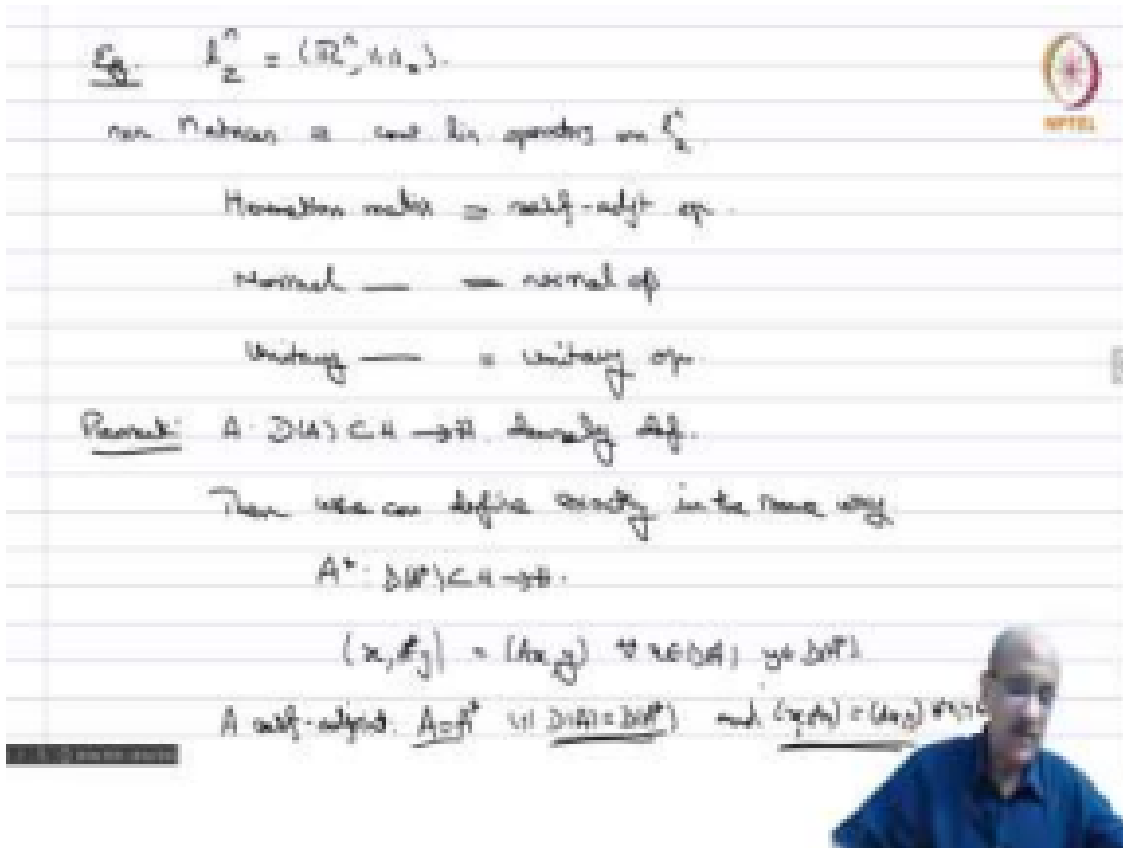 Eg. l₂ⁿ = (ℝⁿ, ‖·‖₂).
NPTEL
n×n Matrices = cont lin operators on l₂ⁿ
Hermitian matrix = self-adjt op.
Normal — = normal op
Unitary — = unitary op.
Remark: A: D(A) ⊂ H → H. densely def.
Then we can define exactly in the same way
A* : D(A*) ⊂ H → H.
(x, A*y) = (Ax, y) ∀ x ∈ D(A), y ∈ D(A*)
A self-adjoint. A = A* D(A) = D(A*) and (x, Ay) = (Ax, y)